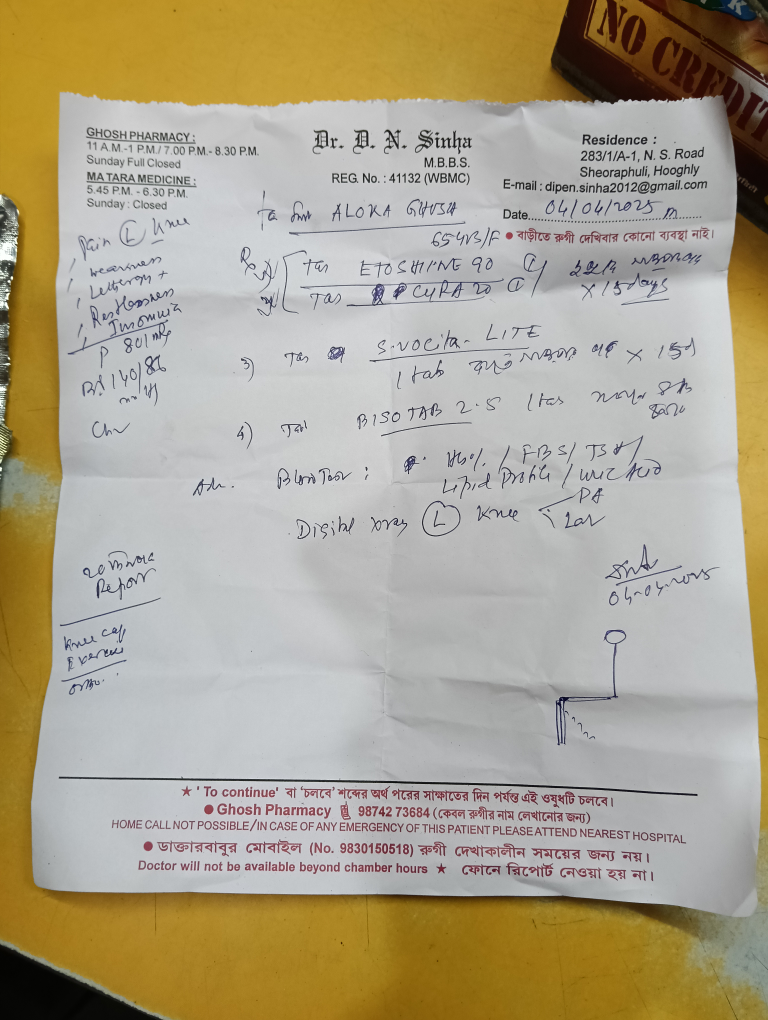 NO CREDIT
GHOSH PHARMACY :
11 A.M.-1 P.M./ 7.00 P.M.- 8.30 P.M.
Sunday Full Closed
MA TARA MEDICINE :
5.45 P.M. - 6.30 P.M.
Sunday : Closed
Dr. D. N. Sinha
M.B.B.S.
REG. No. : 41132 (WBMC)
Residence :
283/1/A-1, N. S. Road
Sheoraphuli, Hooghly
E-mail : dipen.sinha2012@gmail.com
Date 04/04/2025
ALOKA GHOSH
● বাড়ীতে রুগী দেখিবার কোনো ব্যবস্থা নাই।
Pain L Knee
weakness
Lethergy +
Restlessness
Insomnia
P 80/m
BP 140/86
Tab ETOSHINE 90
Tab CYRA 20
X 15days
3) Tab S-VOCITA- LITE
1 tab X 15d
4) Tab BISOTAB 2.5 1 tab
Adv. Blood Test : Hb% / FBS / TSH /
Lipid Profile / Uric Acid
Digital xray L Knee PA
Lat
Report
Knee Cap
Exercise
Ortho.
04-04-2025
★ ' To continue' বা 'চলবে' শব্দের অর্থ পরের সাক্ষাতের দিন পর্যন্ত এই ওষুধটি চলবে।
● Ghosh Pharmacy 98742 73684 (কেবল রুগীর নাম লেখানোর জন্য)
HOME CALL NOT POSSIBLE/IN CASE OF ANY EMERGENCY OF THIS PATIENT PLEASE ATTEND NEAREST HOSPITAL
● ডাক্তারবাবুর মোবাইল (No. 9830150518) রুগী দেখাকালীন সময়ের জন্য নয়।
Doctor will not be available beyond chamber hours ★ ফোনে রিপোর্ট নেওয়া হয় না।